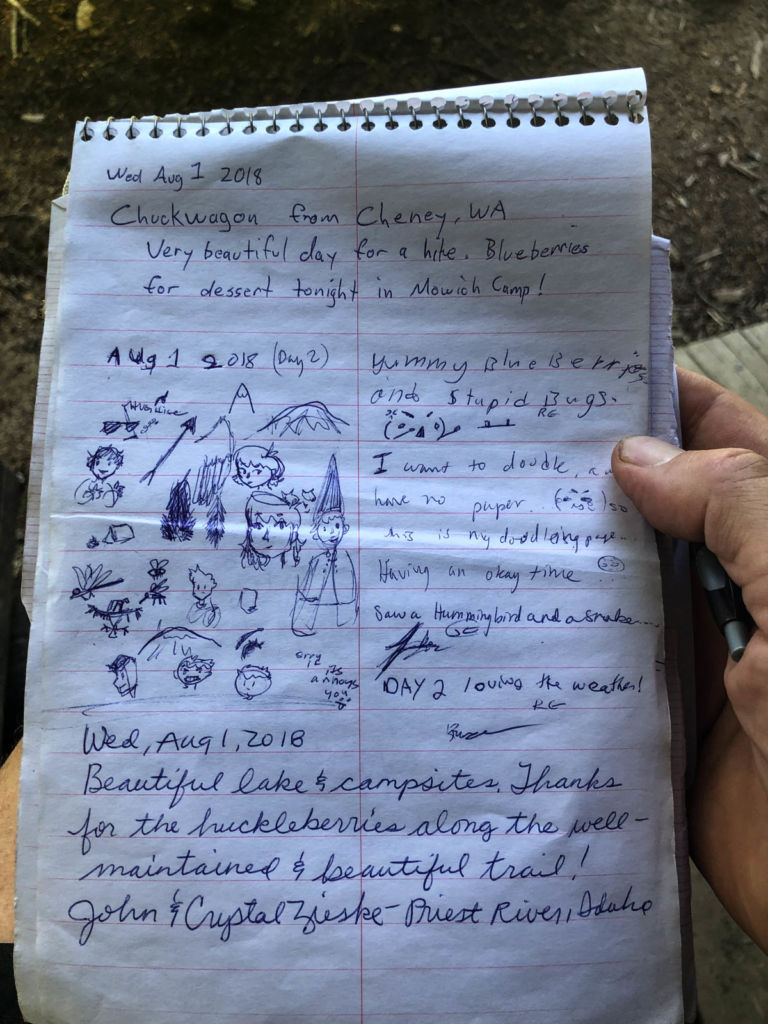 Wed Aug 1 2018
Chuckwagon from Cheney, WA
Very beautiful day for a hike. Blueberries
for dessert tonight in Mowich Camp!
Aug 1 2018 (Day 2)
Yummy Blue Berries
and Stupid Bugs.
RE
I want to doodle,
have no paper... so
this is my doodleing page...
Having an okay time
Saw a Hummingbird and a snake...
DAY 2 loving the weather!
RE
its
annoys
you
Wed, Aug 1, 2018
Beautiful lake & campsites. Thanks
for the huckleberries along the well-
maintained & beautiful trail!
John & Crystal Zieske - Priest River, Idaho